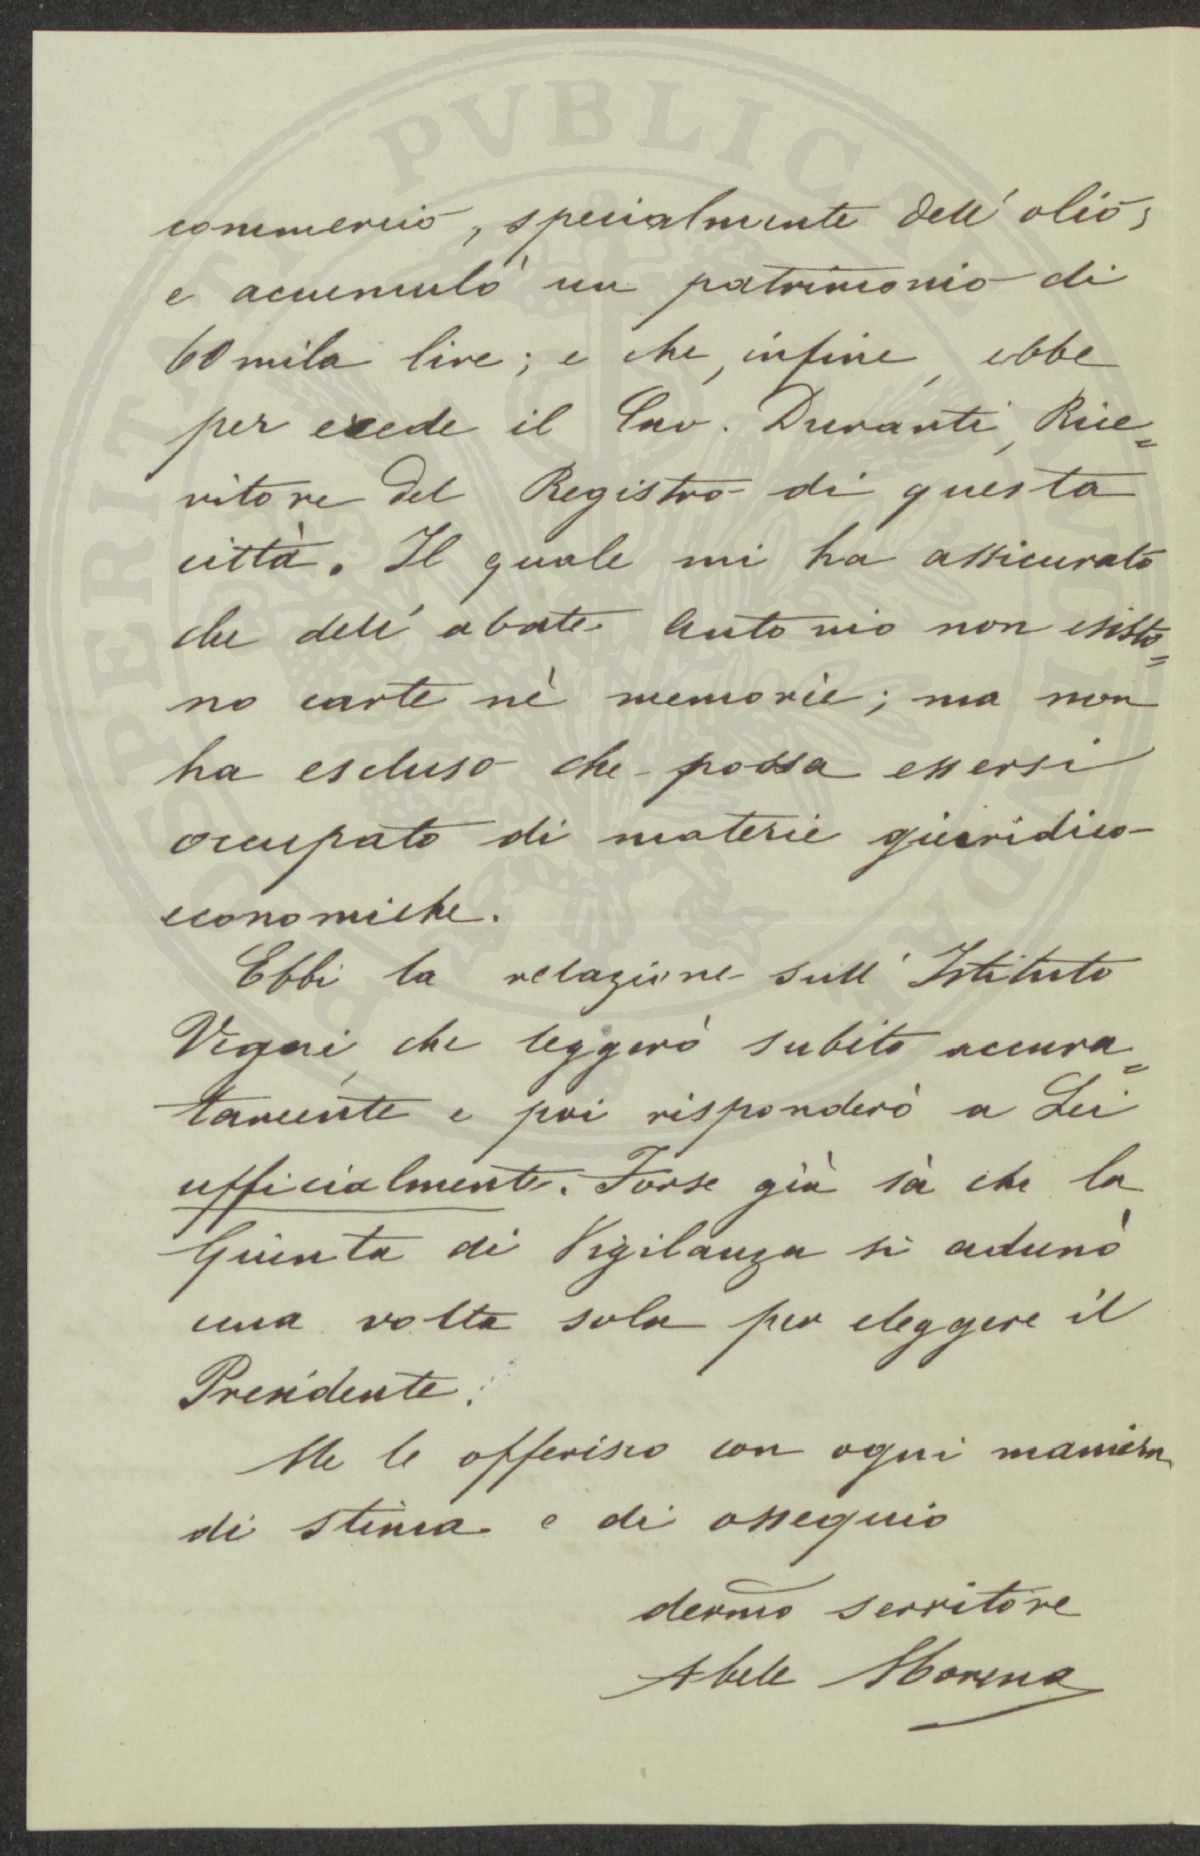 commercio, specialmente dell'olio;
e accumulò un patrimonio di
60mila lire; e che, infine, ebbe
per erede il Cav. Duranti, Rice=
vitore del Registro di questa
città. Il quale mi ha assicurato
che dell'abate Antonio non esisto=
no carte nè memorie; ma non
ha escluso che possa essersi
occupato di materie giuridico-
economiche.
Ebbi la relazione sull'Istituto
Vegni, che leggerò subito accura=
tamente e poi risponderò a Lei
ufficialmente. Forse già sà che la
Giunta di Vigilanza si adunò
una volta sola per eleggere il
Presidente.
Me le offerisco con ogni maniera
di stima e di ossequio
devmo servitore
Abele Morena